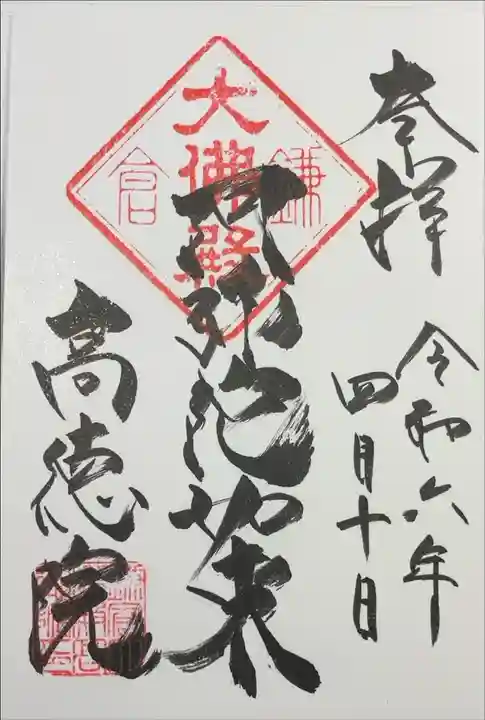 奉拝
令和六年
四月十日
大佛殿
鎌倉
阿弥陀如来
高徳院